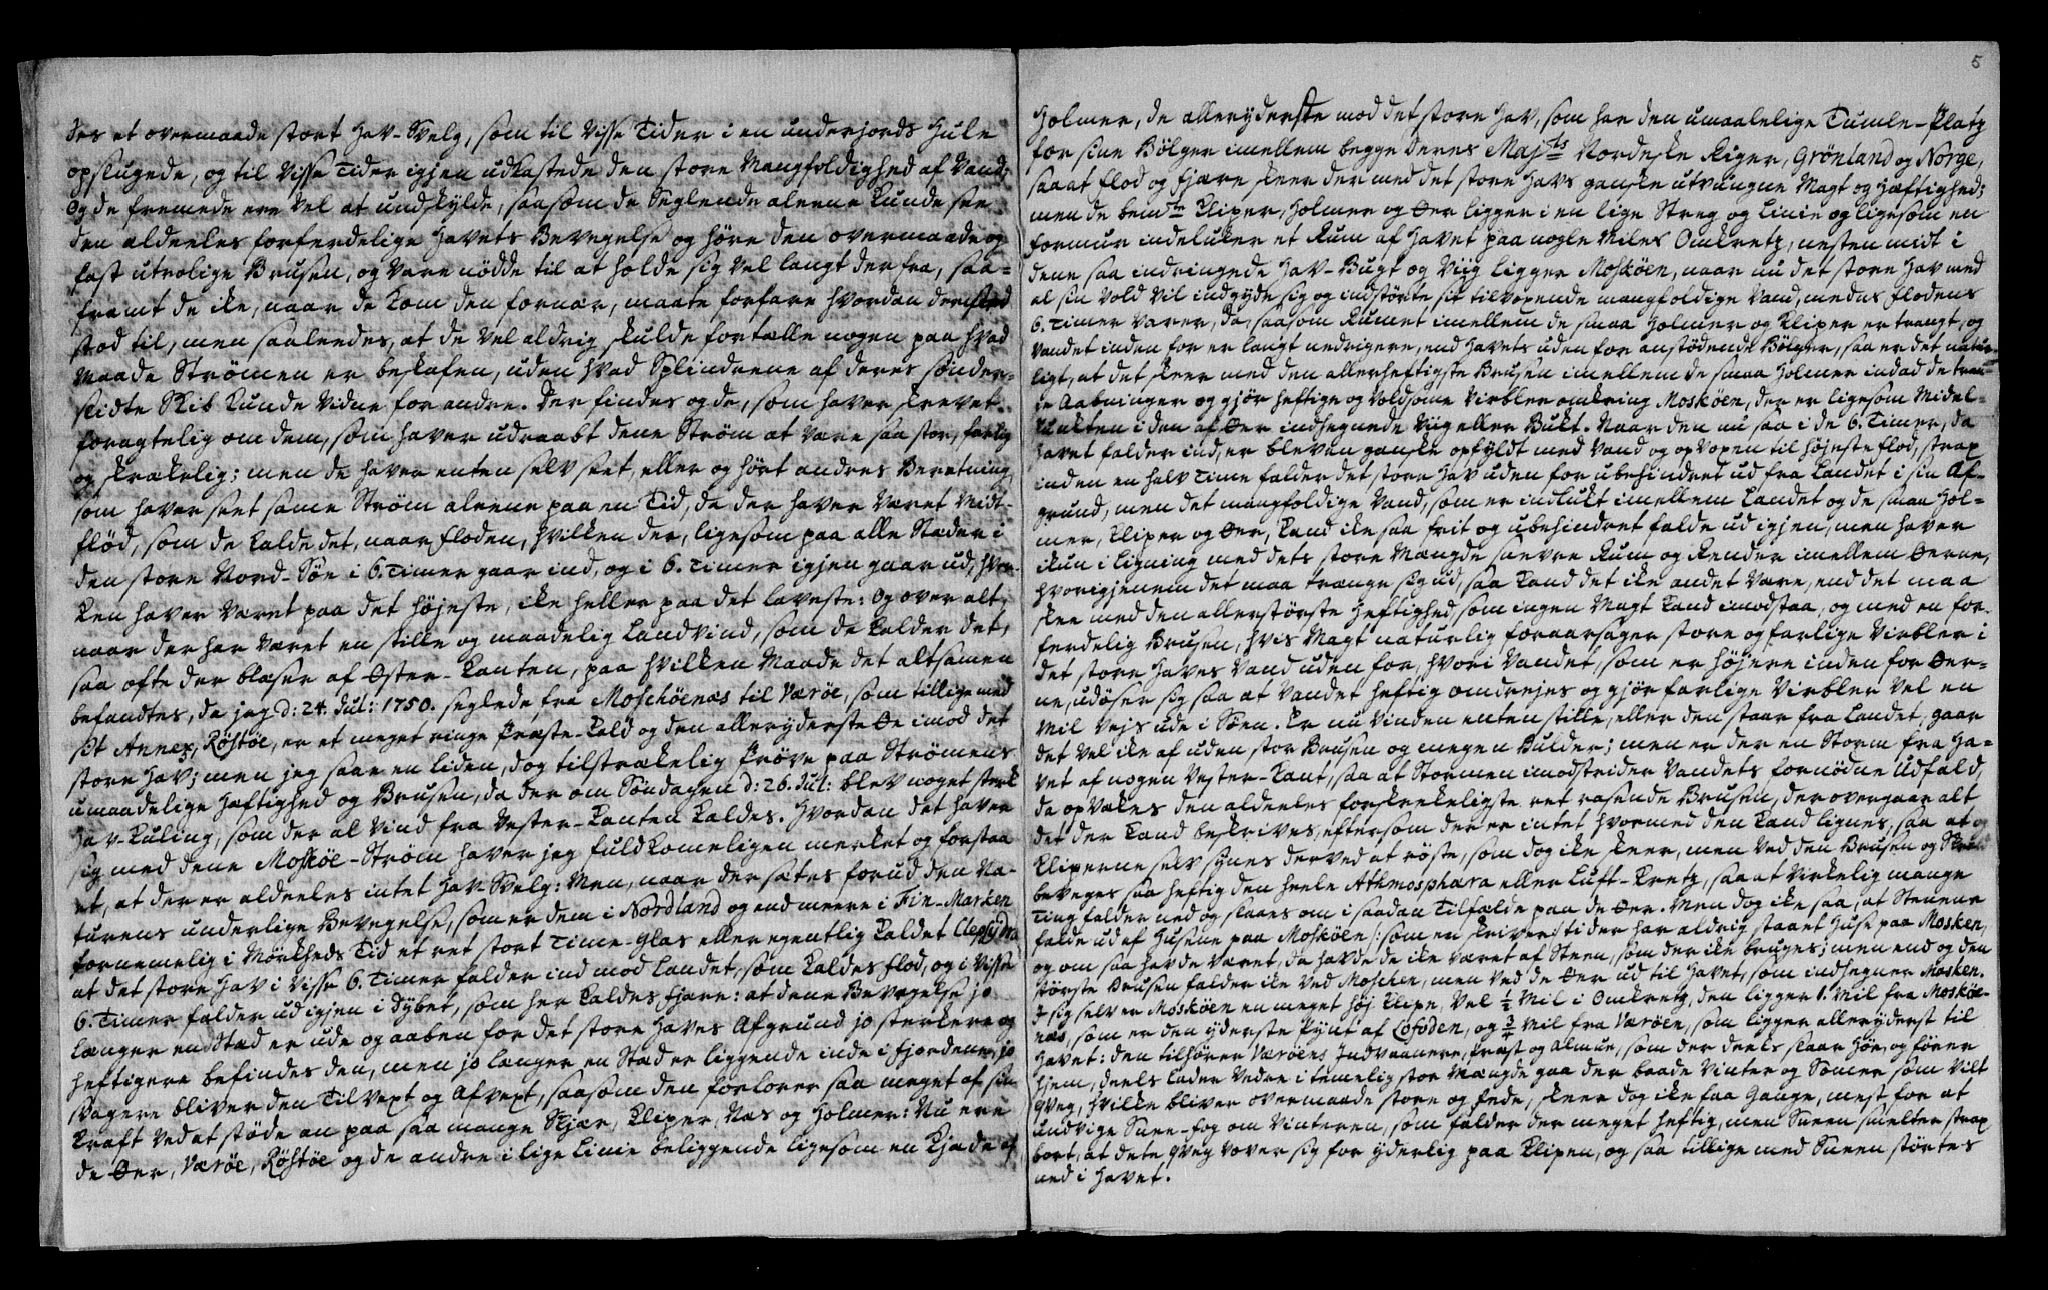 des et overmaade stort Hav-Svelg, som til visse Tider i en underjords Hule
opslugede, og til visse Tider igjen udkastede den store Mangfoldighed af Vand;
Og de fremede ere vel at undskylde, saasom de Seglende alene kunde see
den aldeeles forferdelige Havets Bevegelse og høre den overmaade og
fast utrolige Brusen, og vare nødde til at holde sig vel langt derfra, saa-
framt de ike, naar de kom den for nær, maate forfare hvordan dermed
stod til, men saaleedes, at de vel aldrig skulde fortælle nogen paa hvad
Maade Strømen er beskafen, uden hvad Splindrene af deres sønder-
slidte Skib kunde vidne for andre. Der findes og de, som haver skrevet
foragtelig om dem, som haver udraabt dene Strøm at være saa stor, farlig
og skrækelig; men de haver enten selv seet, eller og hørt andres Beretning
som haver seet same Strøm alene paa en Tid, da der haver været Midt-
flöd, som de kalde det, naar floden, hvilken der, ligesom paa alle Stæder i
den store Nord-Søe i 6. Timer gaar ind, og i 6. Timer igjen gaar ud, hver-
ken haver været paa det højeste, ike heller paa det laveste: Og over alt,
naar der har været en stille og maadelig Landvind, som de kalder det,
saa ofte der blæser af Øster-Kanten, paa hvilken Maade det altsamen
befandtes, da jeg d: 24. Jul: 1750. seglede fra Moschöenæs til Værøe, som tillige med
sit Annex, Röstöe, er et meget ringe Præste-Kald og den alleryderste Øe imod det
store Hav; men jeg saae en liden, dog tilstrækelig Prøve paa Strømens
umaadelige Hæftighed og Brusen, da der om Søndagen d: 26. Jul: blev noget sterk
Hav-Kuling, som der al Vind fra Vester-Kanten kaldes. Hvordan det haver
sig med dene Moskøe-Strøm haver jeg fuldkomeligen merket og forstaa-
et, at der er aldeeles intet Hav-Svelg: Men, naar der sætes forud den Na-
turens underlige Bevegelse, som er dem i Nordland og end meere i Fin-Marken
fornemelig i Mørkheds Tid et ret stort Time-Glas eller egentlig kaldet Clepsydra
at det store Hav i visse 6. Timer falder ind mod Landet, som kaldes flod, og i visse
6. Timer falder ud igjen i Dybet, som her kaldes fjære: at dene Bevegelse jo
længer end Stæd er ude og aaben for det store Haves Afgrund jo sterkere og
heftigere befindes den, men jo længer en Stæd er liggende inde i fjordene, jo
svagere bliver den Tilvext og Afvext, saasom den forlorer saa meget af sin
Kraft ved at støde an paa saa mange Skjær, Kliper, Næs og Holmer: Nu ere
de Øer, Værøe, Röstöe og de andre i lige Linie beliggende ligesom en Kjæde af
5
Holmer, de alleryderste mod det store Hav, som har den umaalelige Tumle-Platz
for sine Bølger imellem begge deres Majts Nordiske Riger, Grönland og Norge,
saa at flod og fjære skeer der med det store Havs ganske utvungne Magt og Hæftighed;
men de bemte Kliper, Holmer og Øer ligger i en lige Streg og Linie og ligesom en
formur indeluker et Rum af Havet paa nogle Miles Omkretz, nesten midt i
dene saa indringede Hav-Bugt og Viig ligger Moskøen, naar nu det store Hav med
al sin Vold vil indgyde sig og indstørte sit tilvoxende mangfoldige Vand, medens flodens
6. Timer varer, da, saasom Rumet imellem de smaa Holmer og Kliper er trangt, og
Vandet inden for er langt nedrigere, end Havets uden for anstødende Bølger, saa er det natur-
ligt, at det skeer med den allerheftigste Brusen imellem de smaa Holmer indad de tran-
ge Aabninger og gjør heftige og voldsome Virbler omkring Moskøen, der er ligesom Midel-
Pukten i den af Øer indhegnede Viig eller Bukt. Naar den nu saa i de 6. Timer, da
Havet falder ind, er bleven ganske opfyldt med Vand og opvoxen til højeste flod, strax
inden en halv Time falder det store Hav uden for ubehindret ud fra Landet i sin Af-
grund, men det mangfoldige Vand, som er indlukt imellem Landet og de smaa Hol-
mer, Kliper og Øer, kand ike saa frit og ubehindret falde ud igjen, men haver
ikun i Ligning med dets store Mængde snevre Rum og Render imellem Øerne,
hvorigjenem det maa trænge sig ud, saa kand det ike andet være, end det maa
skee med den allerstørste Heftighed, som ingen Magt kand imodstaa, og med en for-
ferdelig Brusen, hvis Magt naturlig foraarsager store og farlige Virbler i
det store Haves Vand uden for, hvori Vandet, som er højere inden for Øer-
ne, udøser sig saa at Vandet heftig omdrejes og gjør farlige Virbler vel en
Mil vejs ude i Søen. Er nu Vinden enten stille, eller den staar fra Landet, gaar
det vel ike af uden stor Brusen og megen Bulder; men er der en Storm fra Ha-
vet af nogen Vester-Kant, saa at Stormen imodstrider Vandets fornødne Udfald,
da opvekes den aldeeles forskrekeligste ret rasende Brusen, der overgaar alt
det der kand beskrives, eftersom der er intet hvormed den kand lignes, saa at og
Kliperne selv synes derved at röste, som dog ike skeer, men ved den Brusen og
beveges saa heftig den heele Athmosphæra eller Luft-Kretz, saa at virkelig mange
Ting falder ned og slaaes om i saadan Tilfælde paa de Øer. Men dog ike saa, at Steenene
falde ud af Husene paa Moskøen /: som en skriver:/ ti der har aldrig staaet Huse paa Mosken,
og om saa havde været, da havde de ike været af Steen, som der ike bruges; men end og den
største Brusen falder ike ved Moschen, men ved de Øer ud til Havet, som indhegner Mosken.
I sig selv er Moskøen en meget høj Klipe, vel 1/2 Mil i Omkretz, den ligger 1. Mil fra Moskøe-
næs, som er den yderste Pynt af Lofoden, og 3/4 Mil fra Værøen, som ligger alleryderst til
Havet: den tilhører Værøens Indvaanere, Præst og Almue, som der deels slaar Høe, og fører
hjem, deels lader Vedre i temelig stor Mængde gaa der baade Vinter og Somer som vilt
Qveg, hvilke bliver overmaade store og fede, skeer dog ike faa Gange, mest for at
undvige Snee-fog om Vinteren, som falder der meget heftig, men Sneen smelter strax
bort, at dete Qveg vover sig for yderlig paa Klipen, og saa tillige med Sneen størtes
ned i Havet.